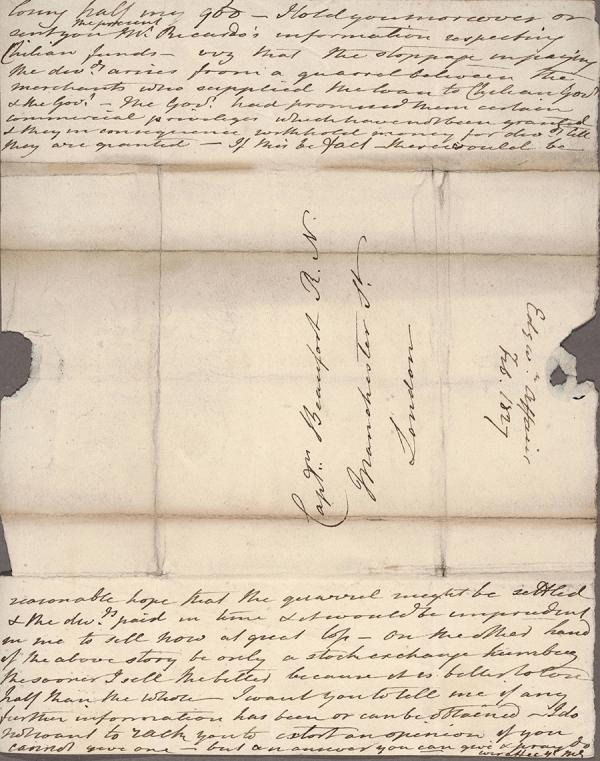 losing half my 900 — I told you moreover or
sent you Mr. Ricardo's information respecting the present
Chilian funds — viz that the stoppage in paying
the divds. arises from a quarrel between the
merchants who supplied the loan to Chilian Govt
& the Govt. — The Govt. had promised them certain
commercial privileges which have not been granted
& they in consequence withhold money for divds. till
they are granted — If this be fact — there would be
Captn. Beaufort R. N.
Manchester St.
London
Edgwth. Affairs
Feb. 1827
reasonable hope that the quarrel might be settled
& the divds. paid in time & it would be imprudent
in me to sell now at great loss — On the other hand
if the above story be only a stock exchange humbug
the sooner I sell the better because it is better to lose
half than the whole — I want you to tell me if any
further information has been or can be obtained — I do
not want to rack you to extort an opinion if you
cannot give one — but an answer you can give & pray do